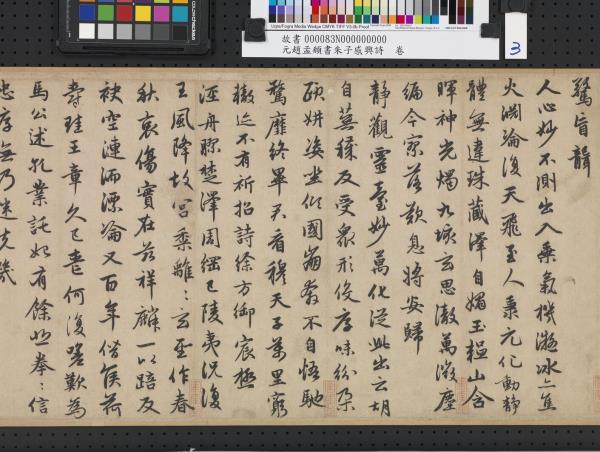 Uqra/Fogra Media Wedge CMYK TIFF V3.0b Proof
故書 000083N000000000
元趙孟頫書朱子感興詩 卷
3
驚盲聾
人心妙不測出入乘氣機凝冰亦焦
火淵淪復天飛至人秉元化動靜
體無違珠藏澤自媚玉韞山含
暉神光燭九垓玄思徹萬微塵
編今寥落歎息將安歸
靜觀靈臺妙萬化從此出云胡
自蕪穢反受眾形役厚味紛朵
頤妍姿坐傾國崩奔不自悟馳
騖靡終畢君看穆天子萬里窮
轍迹不有祈招詩徐方御宸極
涇舟膠楚澤周綱已陵夷況復
王風降故宮黍離〻玄聖作春
秋哀傷實在茲祥麟一以踣反
袂空漣洏漂淪又百年僭侯荷
爵珪王章久已喪何復嗟歎為
馬公述孔業託始有餘悲拳〻信
忠厚無乃迷先幾